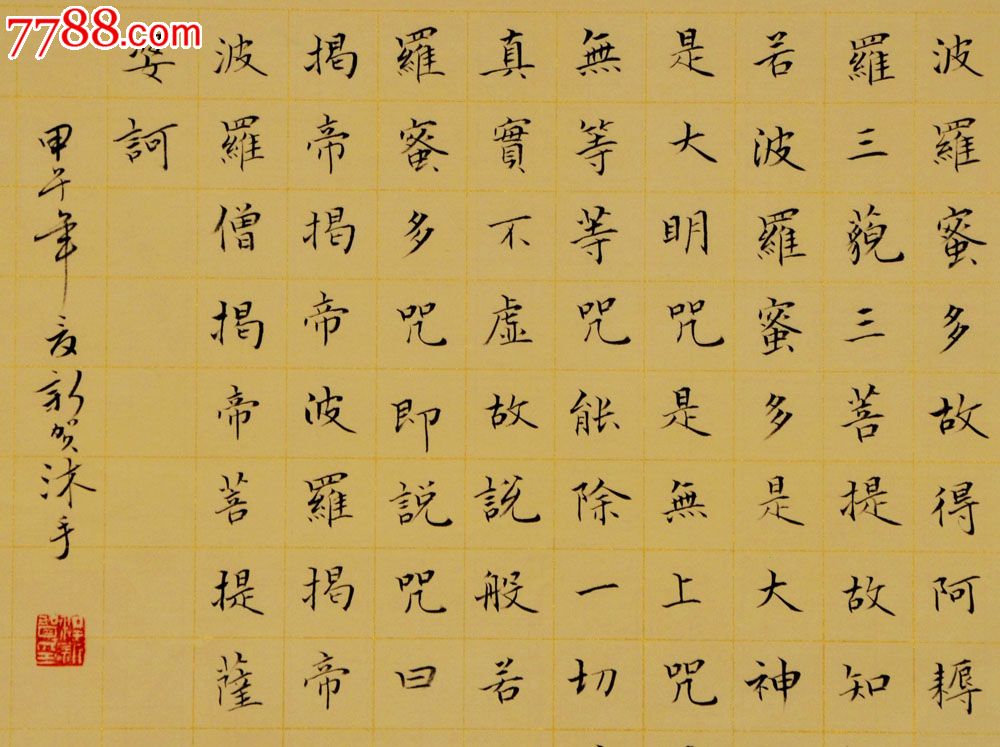 7788.com
波羅蜜多故得阿耨
羅三藐三菩提故知
若波羅蜜多是大神
是大明咒是無上咒
無等等咒能除一切
真實不虛故說般若
羅蜜多咒即說咒曰
揭帝揭帝波羅揭帝
波羅僧揭帝菩提薩
婆訶
甲午年夏新贺沐手